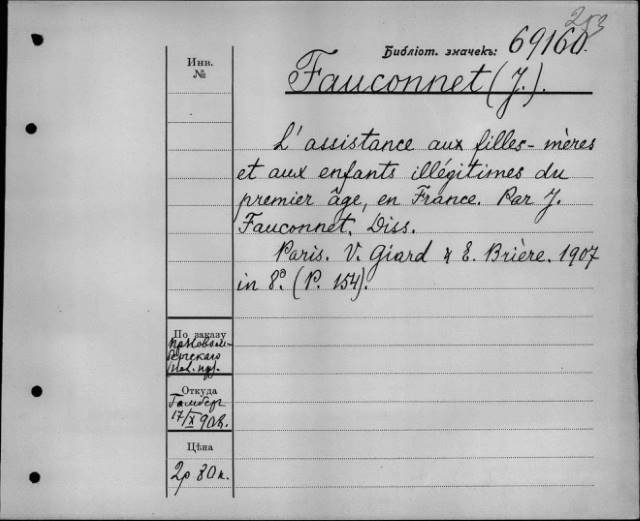 253
Библіот. значекъ: 69160.
Инв.
№
Fauconnet (J.).
L'assistance aux filles-mères
et aux enfants illégitimes du
premier âge, en France. Par J.
Fauconnet. Diss.
Paris. V. Giard & E. Brière. 1907
in 8º. (P. 154).
По заказу
Откуда
Гамберг
17/X 908.
Цѣна
2р 80к.